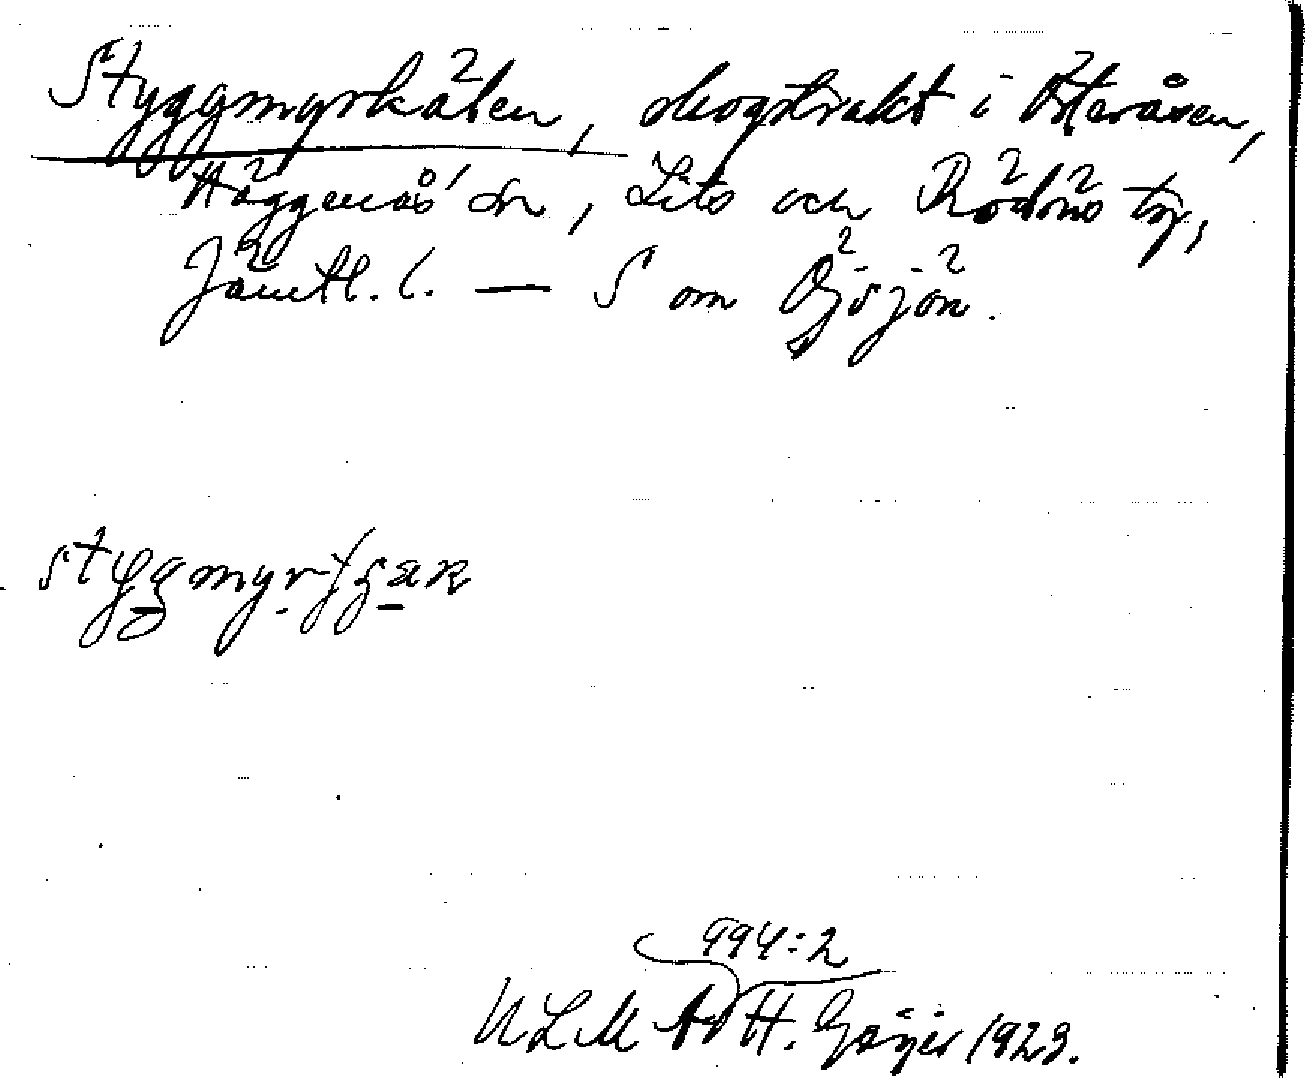 Styggmyrkälen, skogstrakt i Österåsen,
Häggenås' sn, Lits och Rödöns tg,
Jämtl. l. — S om Öjsjön.
994:2
ULMA H. Geijer 1923.